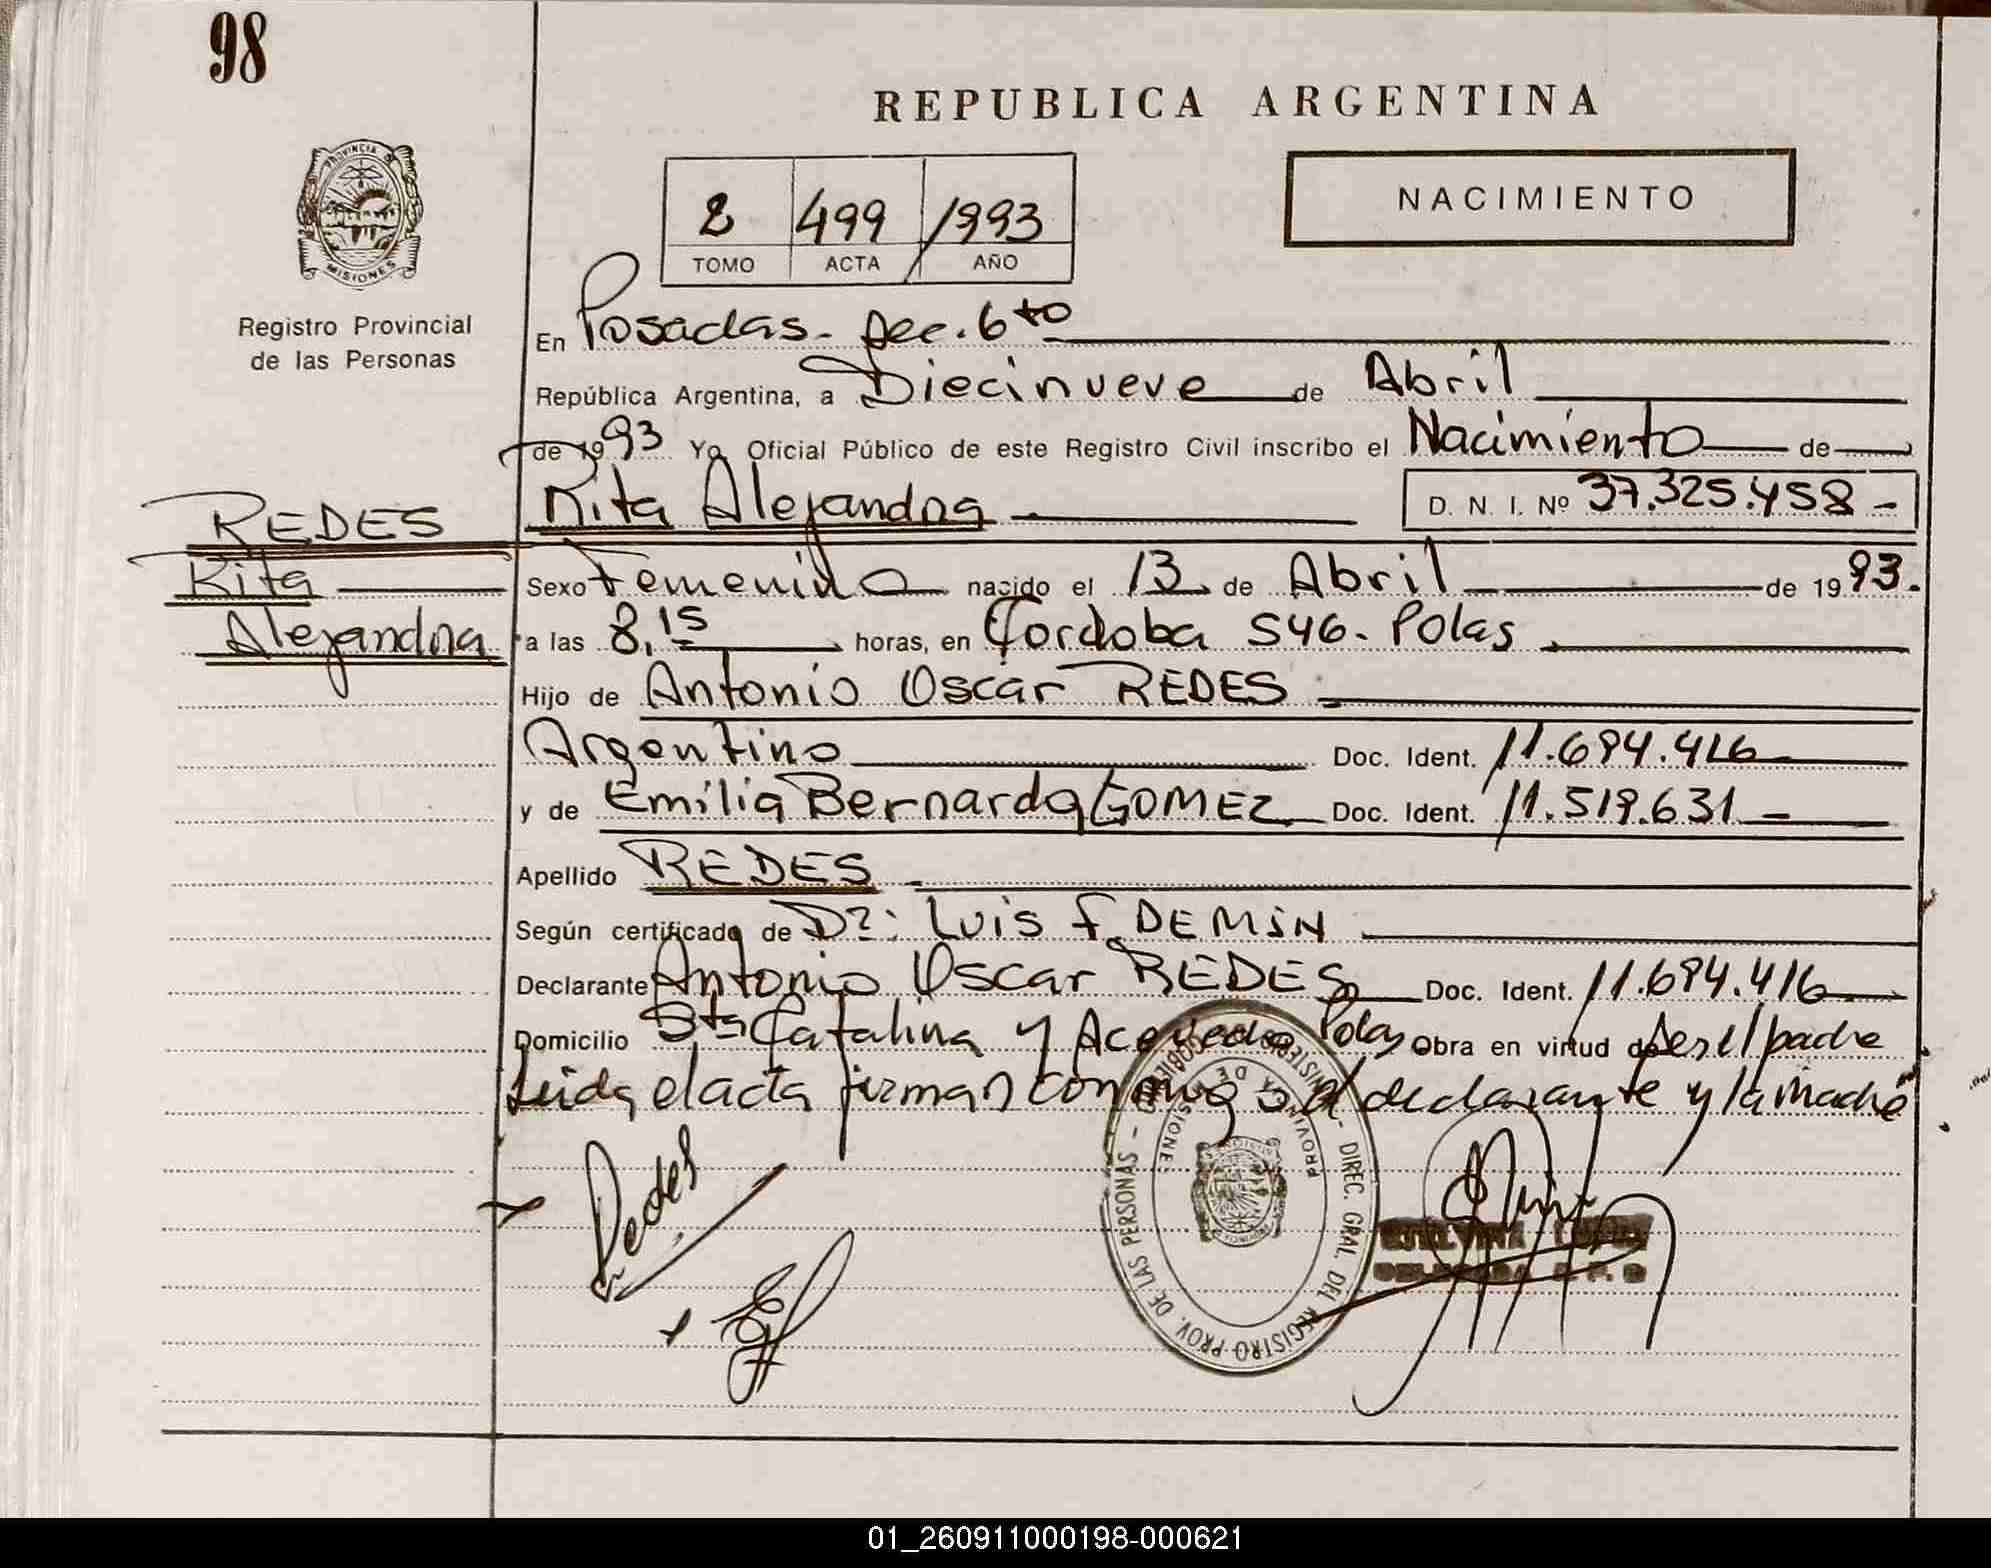 98
REPUBLICA ARGENTINA
PROVINCIA DE
MISIONES
2 499 1993
TOMO ACTA AÑO
NACIMIENTO
Registro Provincial
de las Personas
En Posadas- Sec. 6to
República Argentina, a Diecinueve de Abril
de 1993 Yo Oficial Público de este Registro Civil inscribo el Nacimiento de
Rita Alejandra D. N. I. Nº 37.325.458-
REDES
Rita
Alejandra
Sexo Femenino nacido el 13 de Abril de 1993.
a las 8,15 horas, en Cordoba 546- Pdas
Hijo de Antonio Oscar REDES
Argentino Doc. Ident. 11.694.416
y de Emilia Bernarda GOMEZ Doc. Ident. 11.519.631-
Apellido REDES
Según certificado de Dr: Luis F. DEMIN
Declarante Antonio Oscar REDES Doc. Ident. 11.694.416
Domicilio Sta Catalina y Acevedo Pdas Obra en virtud de Ser el padre
Leida el acta firman conmigo el declarante y la madre
Redes
DIREC. GRAL. DEL REGISTRO PROV. DE LAS PERSONAS -
PROVINCIA DE MISIONES
01_260911000198-000621